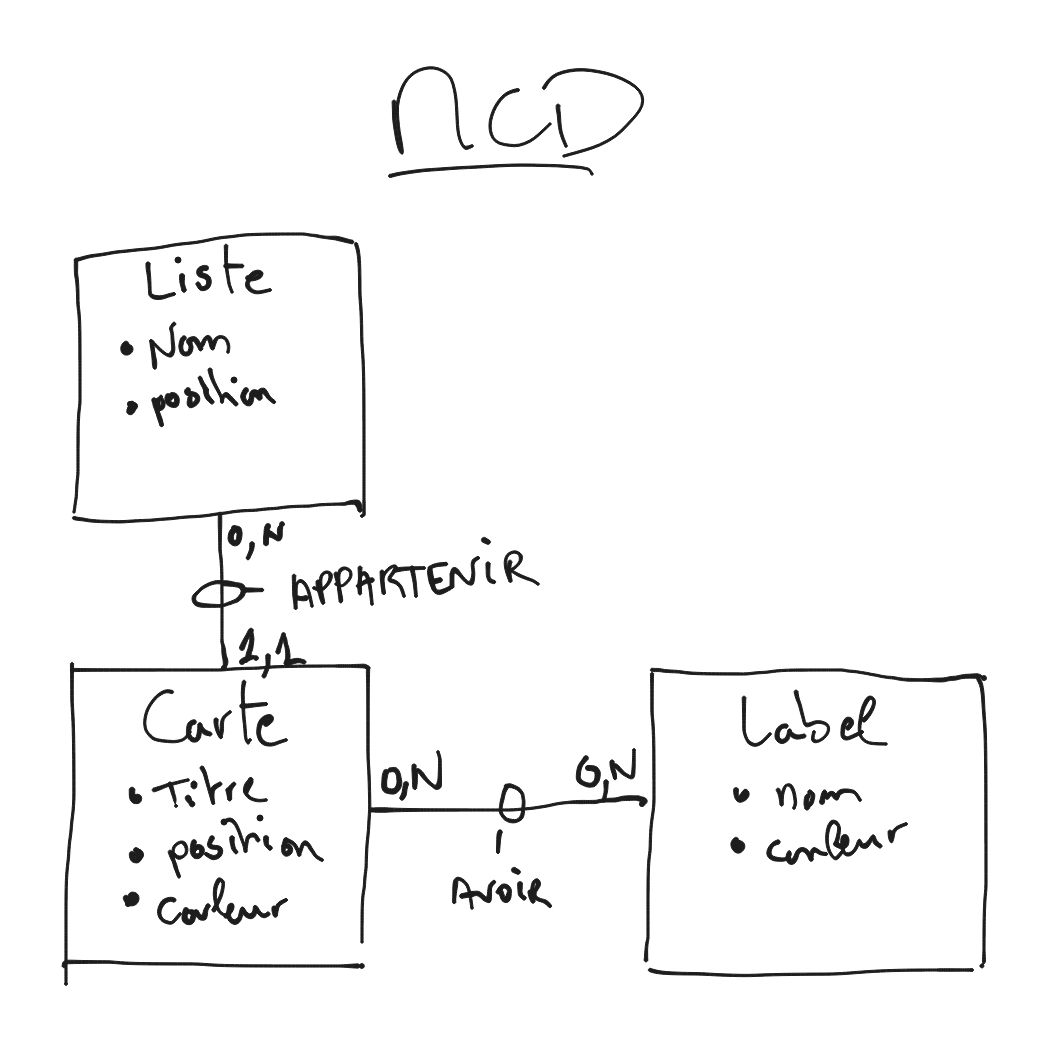 MCD
Liste
• Nom
• position
0,N
APPARTENIR
1,1
Carte
• Titre
• position
• Couleur
0,N
0,N
Avoir
Label
• nom
• couleur